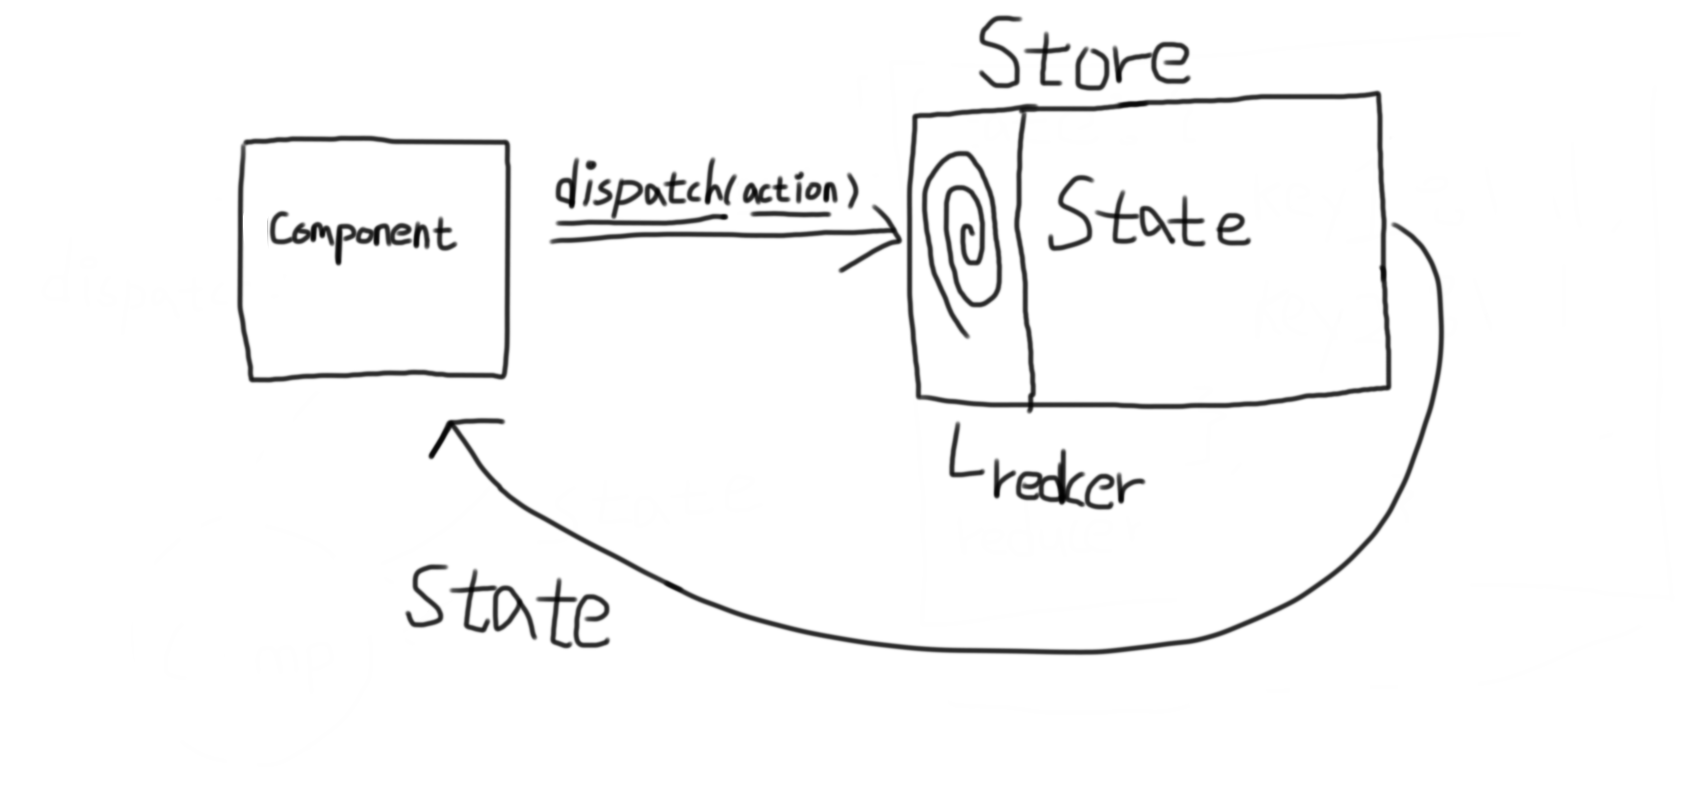 Store
Component
dispatch(action)
State
redcer
State